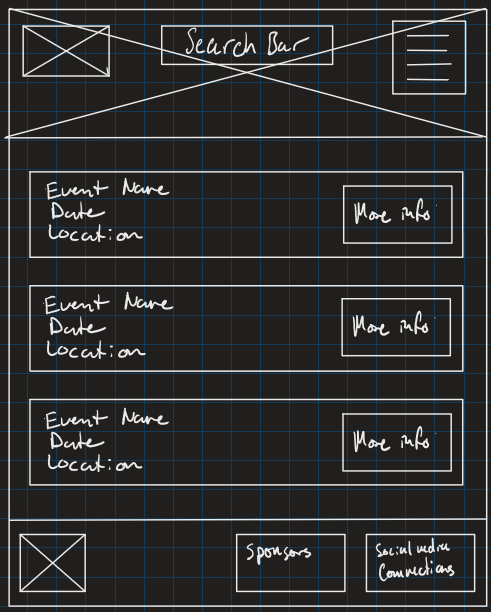 Search Bar
Event Name
Date
Location
More info
Event Name
Date
Location
More info
Event Name
Date
Location
More info
Sponsors
Social media
Connections